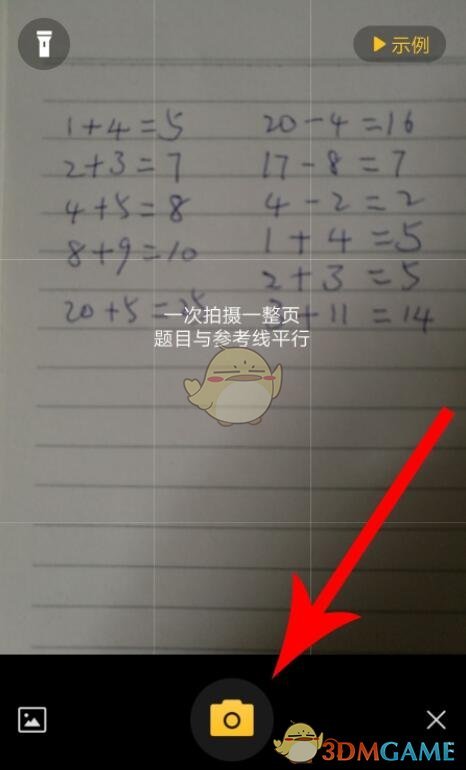 示例
1+4=5
2+3=7
4+5=8
8+9=10
20+5=25
20-4=16
17-8=7
4-2=2
1+4=5
2+3=5
3+11=14
一次拍摄一整页
题目与参考线平行
3DMGAME